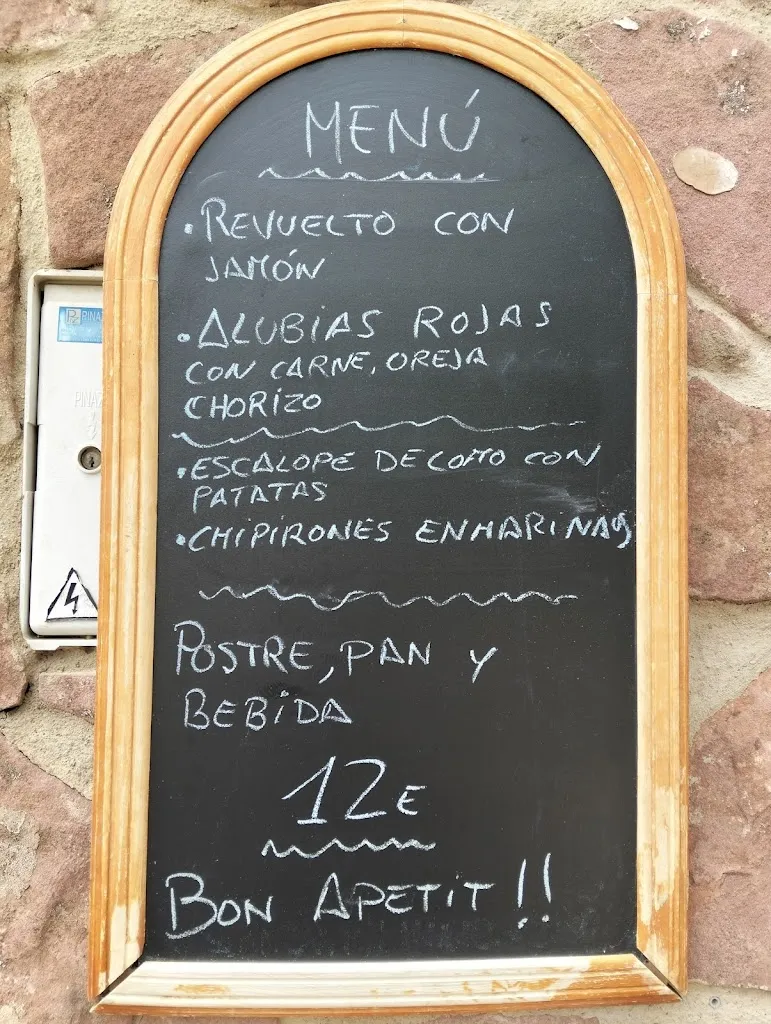 MENÚ
· REVUELTO CON
JAMÓN
· ALUBIAS ROJAS
CON CARNE, OREJA
CHORIZO
· ESCALOPE DE LOMO CON
PATATAS
· CHIPIRONES ENHARINAS
POSTRE, PAN Y
BEBIDA
12E
BON APETIT!!
PINAZ
PINAZ